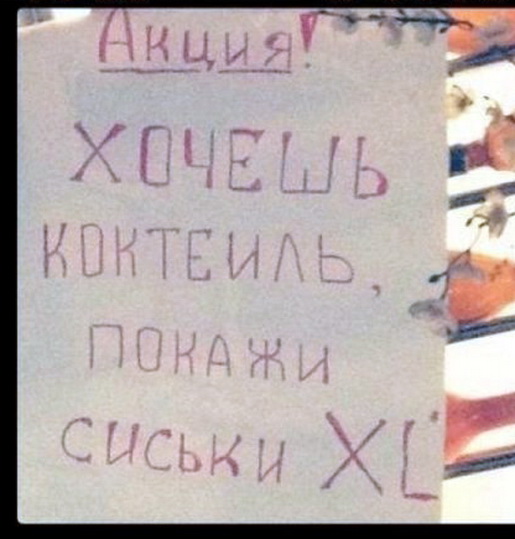 Акция!
ХОЧЕШЬ
КОКТЕИЛЬ,
ПОКАЖИ
СИСЬКИ XL